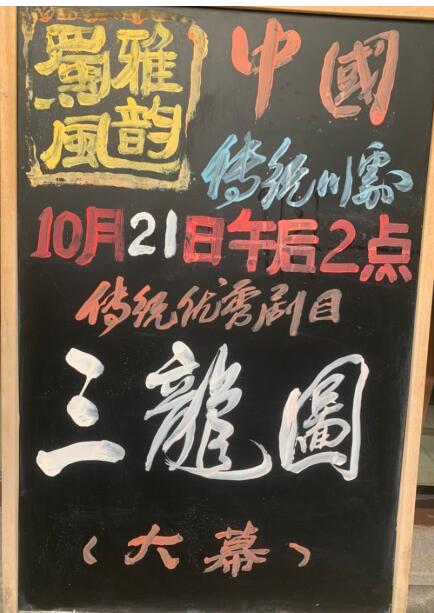 蜀風
雅韵
中國
传统川劇
10月21日午后2点
传统优秀剧目
三龍圖
（大幕）